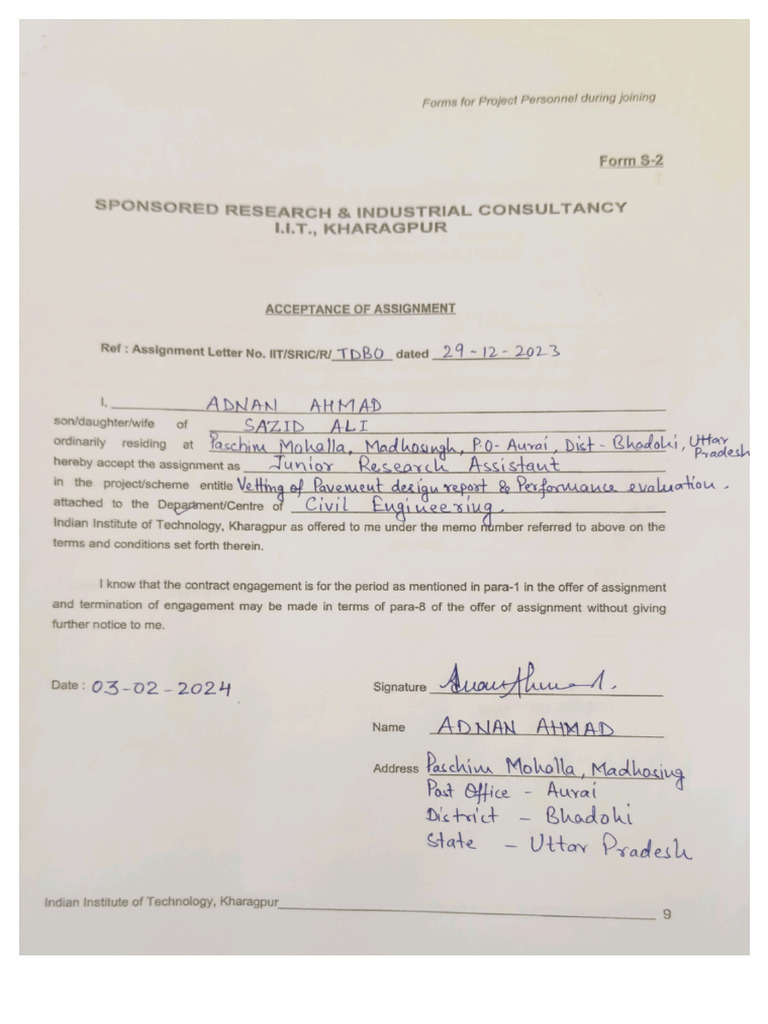 Forms for Project Personnel during joining
Form S-2
SPONSORED RESEARCH & INDUSTRIAL CONSULTANCY
I.I.T., KHARAGPUR
ACCEPTANCE OF ASSIGNMENT
Ref : Assignment Letter No. IIT/SRIC/R/ TDBO dated 29-12-2023
I, ADNAN AHMAD
son/daughter/wife of SAZID ALI
ordinarily residing at Paschim Mohalla, Madhosingh, P.O- Aurai, Dist- Bhadohi, Uttar Pradesh
hereby accept the assignment as Junior Research Assistant
in the project/scheme entitle Vetting of Pavement design report & Performance evaluation.
attached to the Department/Centre of Civil Engineering.
Indian Institute of Technology, Kharagpur as offered to me under the memo number referred to above on the
terms and conditions set forth therein.
I know that the contract engagement is for the period as mentioned in para-1 in the offer of assignment
and termination of engagement may be made in terms of para-8 of the offer of assignment without giving
further notice to me.
Date : 03-02-2024
Signature
Name ADNAN AHMAD
Address Paschim Mohalla, Madhosing
Post Office - Aurai
District - Bhadohi
State - Uttar Pradesh
Indian Institute of Technology, Kharagpur 9